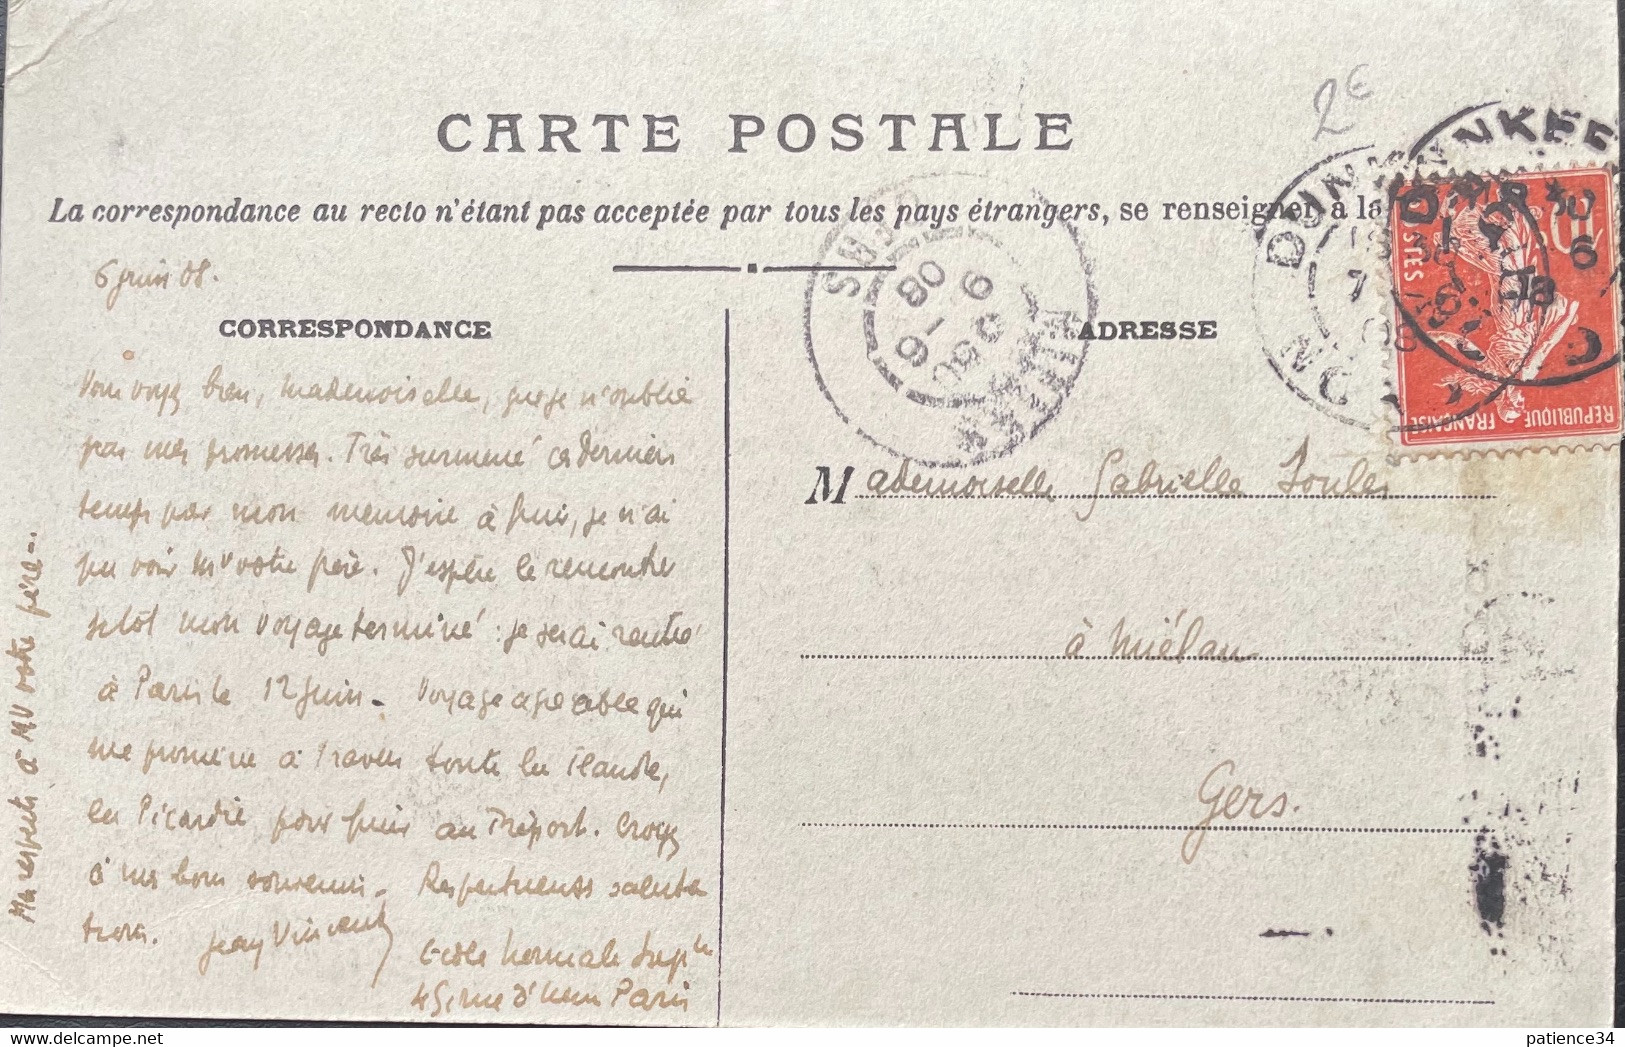 2€
CARTE POSTALE
La correspondance au recto n'étant pas acceptée par tous les pays étrangers, se renseigner à la
6 juin 08.
CORRESPONDANCE
Vous voyez bien, Mademoiselle, que je n'oublie
pas mes promesses. Très surmené ces derniers
temps par mon mémoire à finir, je n'ai
pu voir Mr votre père. J'espère le rencontrer
sitôt mon voyage terminé : je serai rentré
à Paris le 12 juin - Voyage agréable qui
me promène à travers toute la Flandre,
la Picardie pour finir au Tréport. Croyez
à mes bons souvenirs - Respectueuses saluta
tions. Jean Vincent
Ecole Normale Supre
45, rue d'Ulm Paris
Mes respects à Mr votre père -.
ADRESSE
Mademoiselle Gabrielle Soulès
à Miélan
Gers.
DUNKERQUE
NORD
7
6
08
DUNKERQUE
6
MIELAN
GERS
9
6
08
10
POSTES
REPUBLIQUE FRANÇAISE
patience34